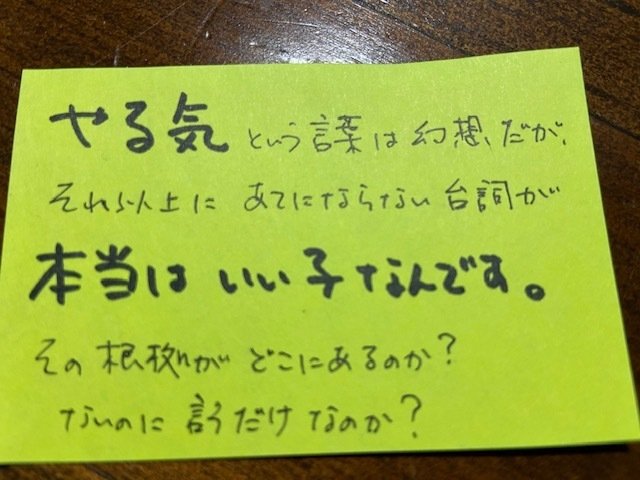 やる気という言葉は幻想、だが、
それ以上にあてにならない台詞が
本当はいい子なんです。
その根拠がどこにあるのか?
ないのに言うだけなのか?